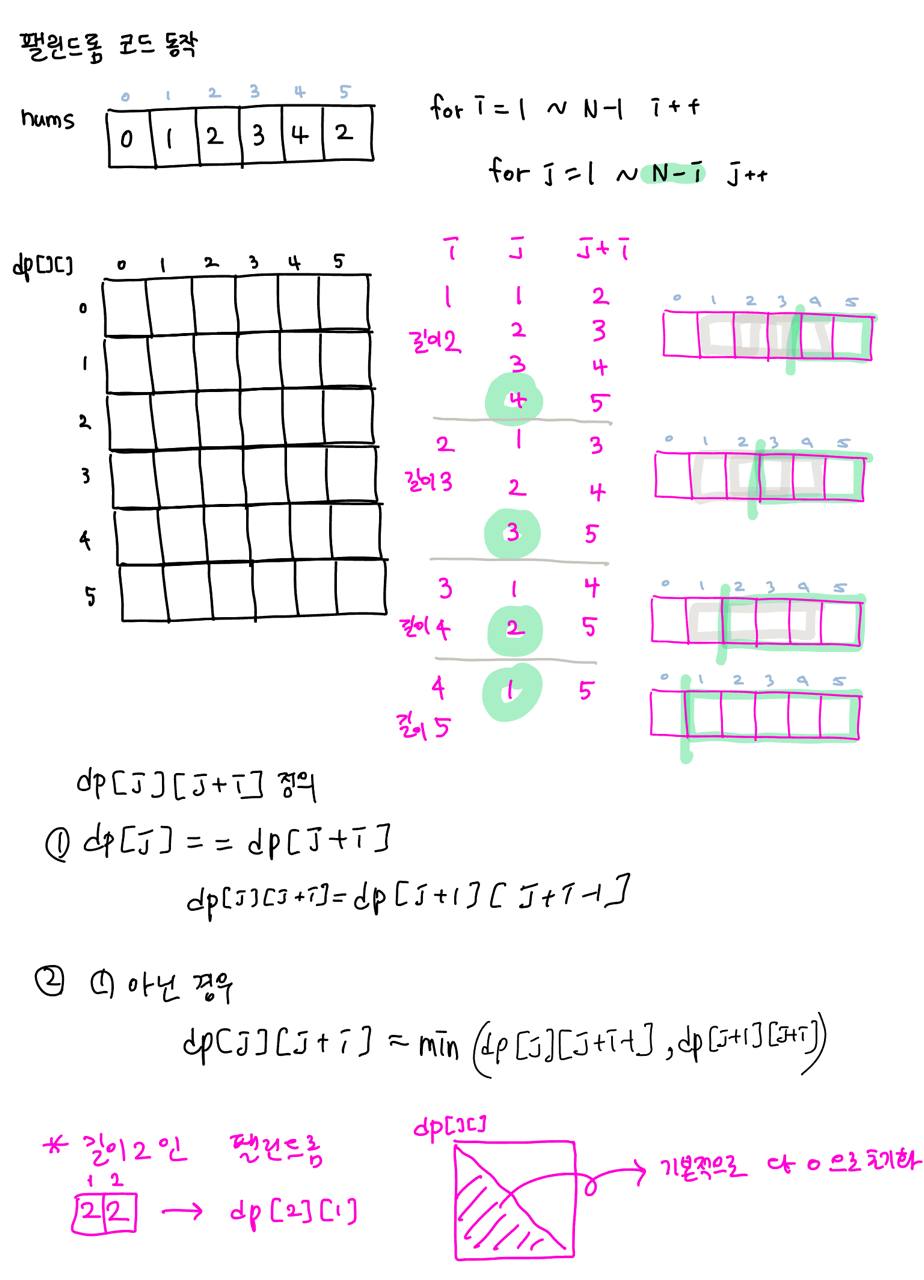 팰린드롬 코드 동작
0 1 2 3 4 5
nums 0 1 2 3 4 2
for i = 1 ~ N-1 i++
for j = 1 ~ N-i j++
dp[][] 0 1 2 3 4 5
0
1
2
3
4
5
i j j+i
1 1 2
길이2 2 3
3 4
4 5
2 1 3
길이3 2 4
3 5
3 1 4
길이4 2 5
4 1 5
길이5
0 1 2 3 4 5
0 1 2 3 4 5
0 1 2 3 4 5
0 1 2 3 4 5
dp[j][j+i] 정의
① dp[j] == dp[j+i]
dp[j][j+i] = dp[j+1][j+i-1]
② ① 아닌 경우
dp[j][j+i] = min(dp[j][j+i-1], dp[j+1][j+i])
* 길이2인 팰린드롬
1 2
2 2 → dp[2][1]
dp[][]
→ 기본적으로 다 0으로 초기화